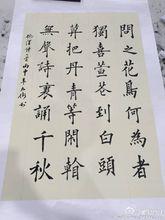 問之花鳥何為者
獨喜萱花到白頭
把丹青等閑
無聲詩裏誦千秋
丙申年 书